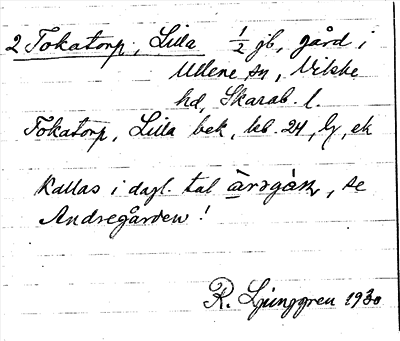 2 Tokatorp, Lilla ½ jb, gård i
Ullene sn, Vilske
hd, Skarab. l.
Tokatorp, Lilla bek, kb. 24, ly, ek
Kallas i dagl. tal se
Andregården!
R. Ljunggren 1930